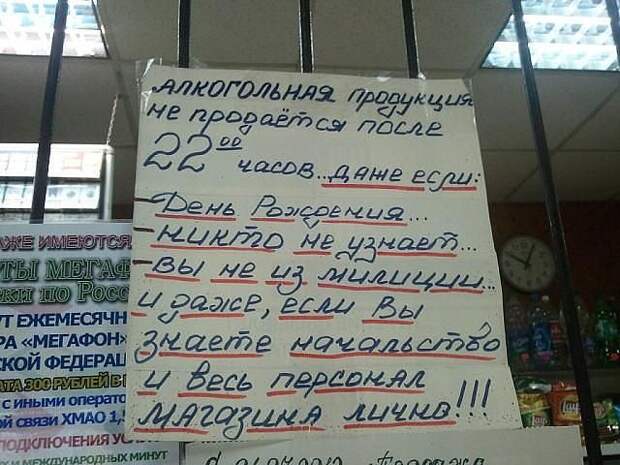 АЛКОГОЛЬНАЯ продукция
не продаётся после
22⁰⁰ часов...даже если:
- День Рождения...
- никто не узнает...
- вы не из милиции...
и даже, если Вы
знаете начальство
и весь персонал
магазина лично!!!
ЖЕ ИМЕЮТСЯ
ТЫ МЕГАФ
по Рос
УТ ЕЖЕМЕСЯЧН
РА «МЕГАФОН»
СКОЙ ФЕДЕРАЦ
АТА 300 РУБЛЕЙ В
с иными операто
ой связи ХМАО 1,5
ПОДКЛЮЧЕНИЯ УС
И МЕЖДУНАРОДНЫХ МИНУТ
Lay's